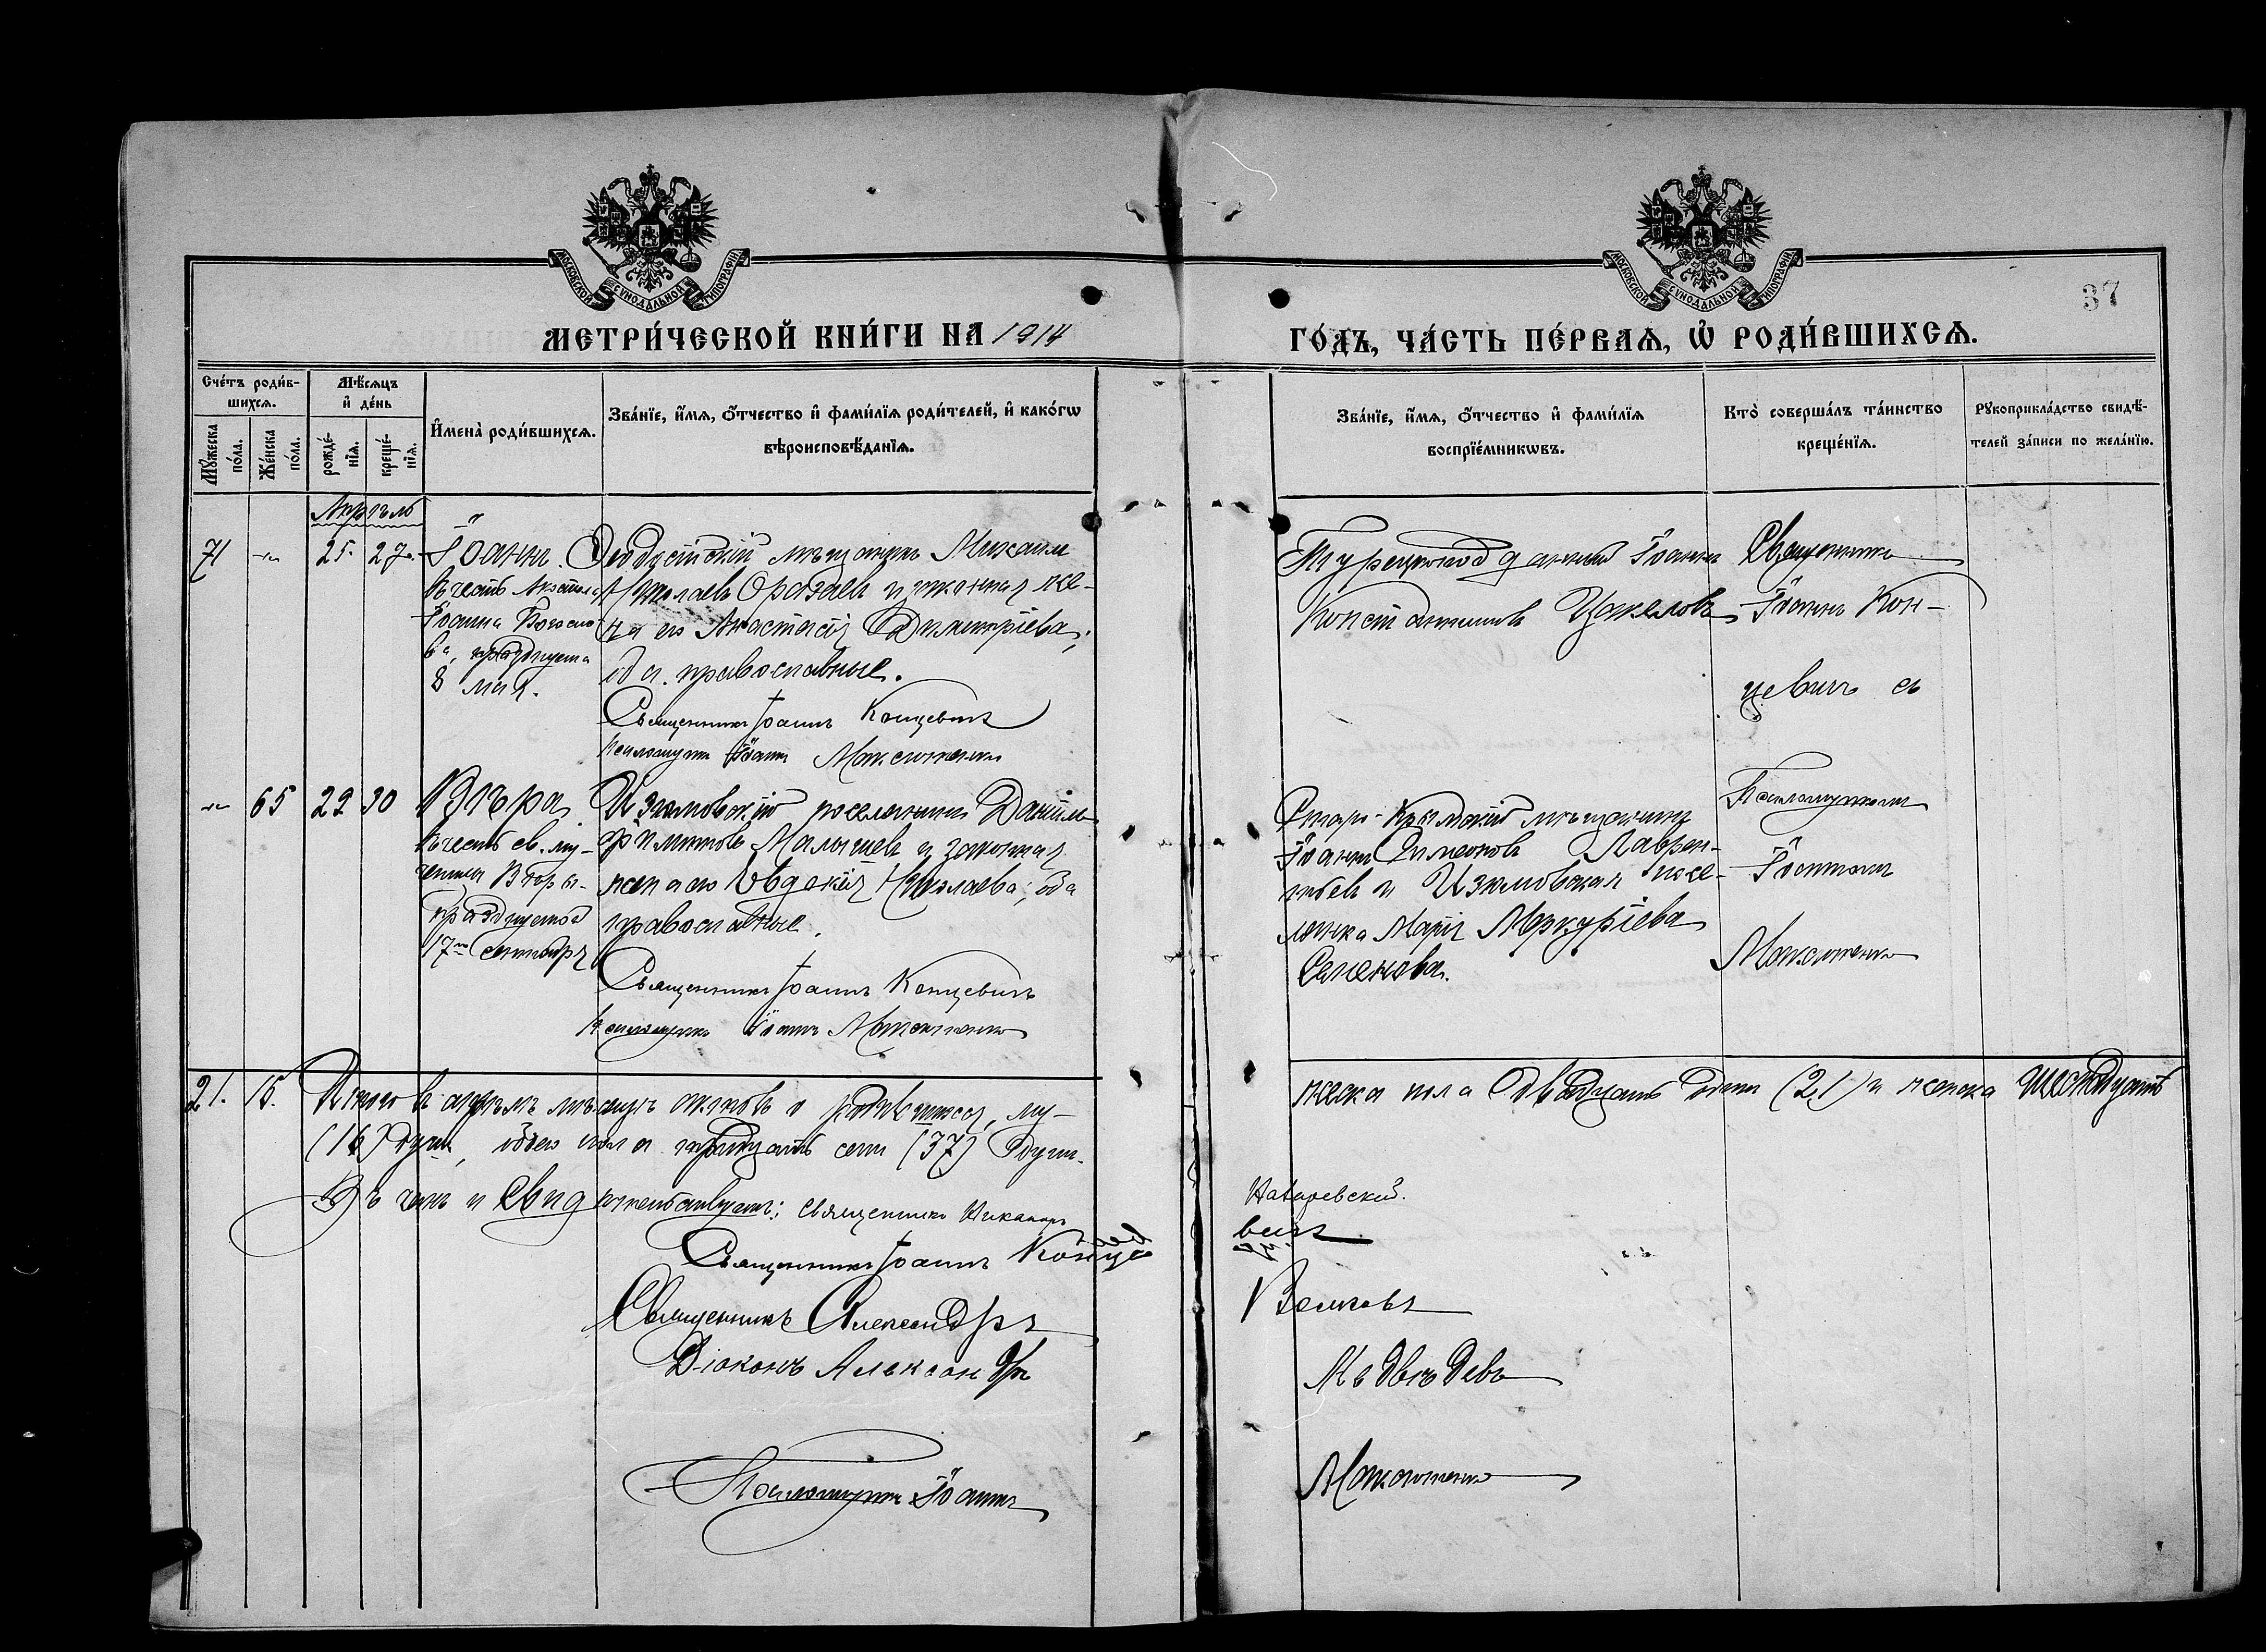 МОСКОВСКОЙ СУНОДАЛЬНОЙ ТИПОГРАФІИ
МОСКОВСКОЙ СУНОДАЛЬНОЙ ТИПОГРАФІИ
37
МЕТРИ́ЧЕСКОЙ КНИ́ГИ НА 1914
ГО́ДЪ, ЧА́СТЬ ПЕ́РВАѦ, Ѡ҆ РОДИ́ВШИХСѦ.
Сче́тъ роди́в-
шихсѧ.
Мꙋ́жеска по́ла.
Же́нска по́ла.
Мѣ́сѧцъ
и҆ де́нь
рожде́-
нїѧ.
креще́-
нїѧ.
И҆мена̀ роди́вшихсѧ.
Зва́нїе, и҆́мѧ, ѻ҆́тчество и҆ фами́лїѧ роди́телей, и҆ како́гѡ
вѣроисповѣ́данїѧ.
Зва́нїе, и҆́мѧ, ѻ҆́тчество и҆ фами́лїѧ
воспрїе́мникѡвъ.
Кто̀ соверша́лъ та́инство
креще́нїѧ.
Рꙋкоприкла́дство свидѣ́-
телей за́писи по жела́нїю.
Апрѣль
71 25. 27.
Іоаннъ.
въ честь Апостола
Іоанна Богосло-
ва, празднуема
8 мая.
Ѳеодосійскій мѣщанинъ Михаилъ
Николаевъ и законная же-
на его Анастасія Димитріева;
оба православные.
Священникъ Іоаннъ Концевичъ
Псаломщикъ Іоаннъ Максименко
Турецкоподданный Іоаннъ
Константиновъ
Священникъ
Іоаннъ Кон-
цевичъ съ
Псаломщикомъ
Іоанномъ
Максименко
65 22 30
Вѣра
въ честь св. му-
ченицы Вѣры-
празднуемой
17го сентября
Изюмовскій поселянинъ Даніилъ
Филиповъ Малышевъ и законная
жена его Евдокія Николаева; оба
православные.
Священникъ Іоаннъ Концевичъ
Псаломщикъ Іоаннъ Максименко
Старо-Крымскій мѣщанинъ
Іоаннъ Симеоновъ Лаврен-
тьевъ и Изюмовская посе-
лянка Марія Меркуріева
Семенова.
21. 16.
Итого въ апрѣлѣ мѣсяцѣ актовъ о родившихся, му-
жеска пола двадцать одинъ (21) и женска шестнадцать
(16) душъ, обоего пола тридцать семь (37) душъ.
Въ чемъ и свидѣтельствуемъ: Священникъ Никаноръ
Священникъ Іоаннъ Конце
вичъ
Священникъ Александръ
Волковъ
Діаконъ Александръ
Медвѣдевъ
Псаломщикъ Іоаннъ
Максименко